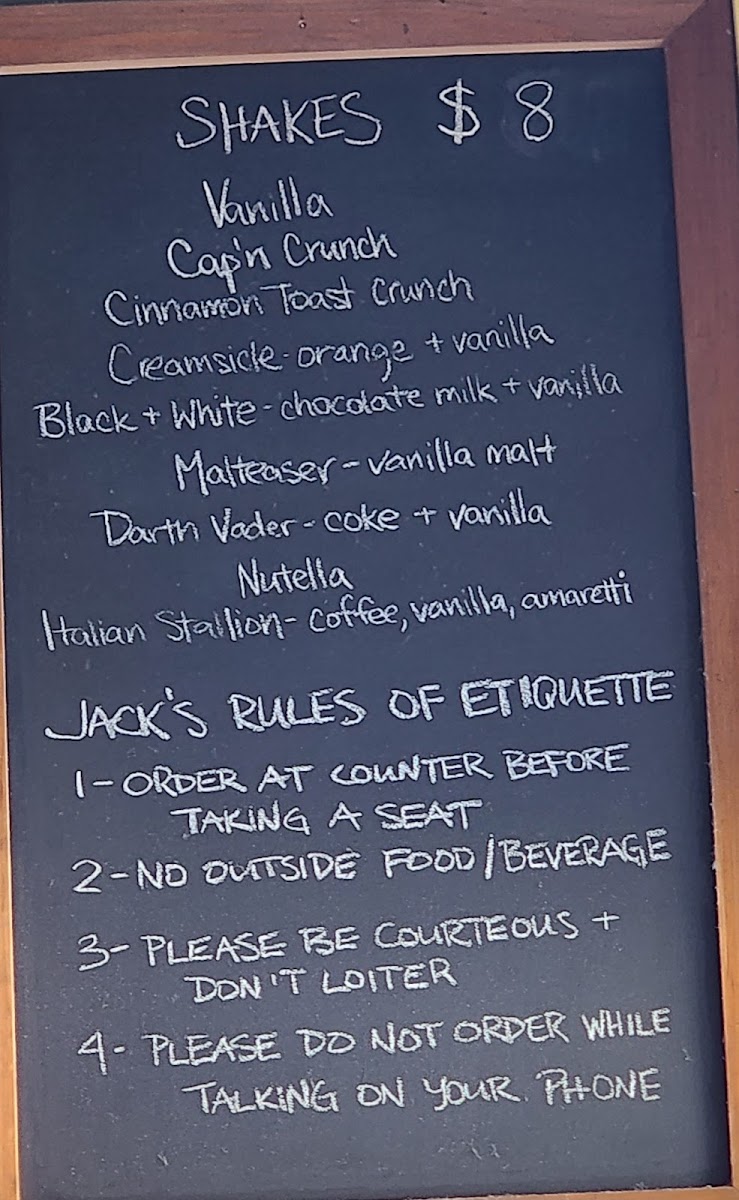 SHAKES $ 8
Vanilla
Cap'n Crunch
Cinnamon Toast Crunch
Creamsicle - orange + vanilla
Black + White - chocolate milk + vanilla
Malteaser - vanilla malt
Darth Vader - coke + vanilla
Nutella
Italian Stallion - coffee, vanilla, amaretti
JACK'S RULES OF ETIQUETTE
1 - ORDER AT COUNTER BEFORE
TAKING A SEAT
2 - NO OUTSIDE FOOD / BEVERAGE
3 - PLEASE BE COURTEOUS +
DON'T LOITER
4 - PLEASE DO NOT ORDER WHILE
TALKING ON YOUR PHONE